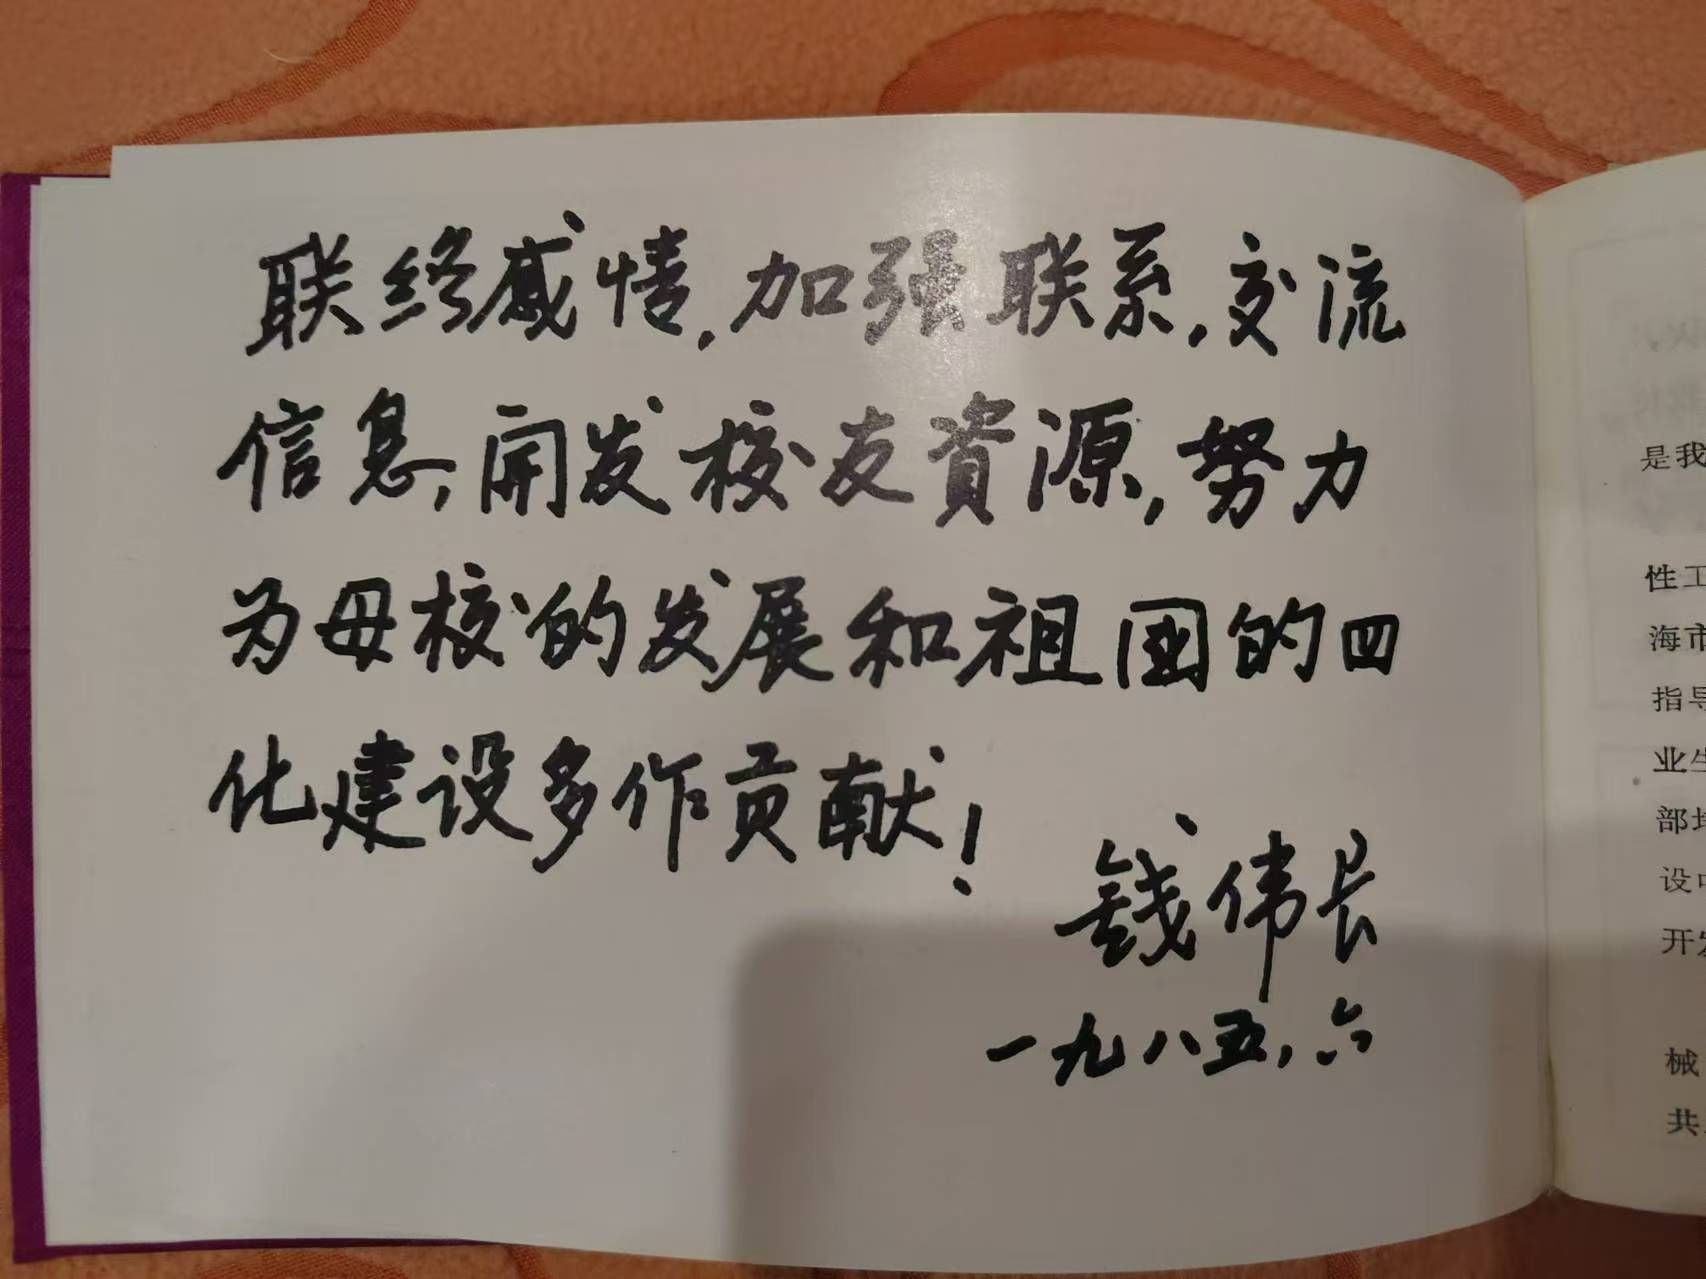 联络感情，加强联系，交流
信息，开发校友資源，努力
为母校的发展和祖国的四
化建设多作贡献！
钱伟长
一九八五，六
是我
性工
海市
指导
业生
部
设中
开发
械
共